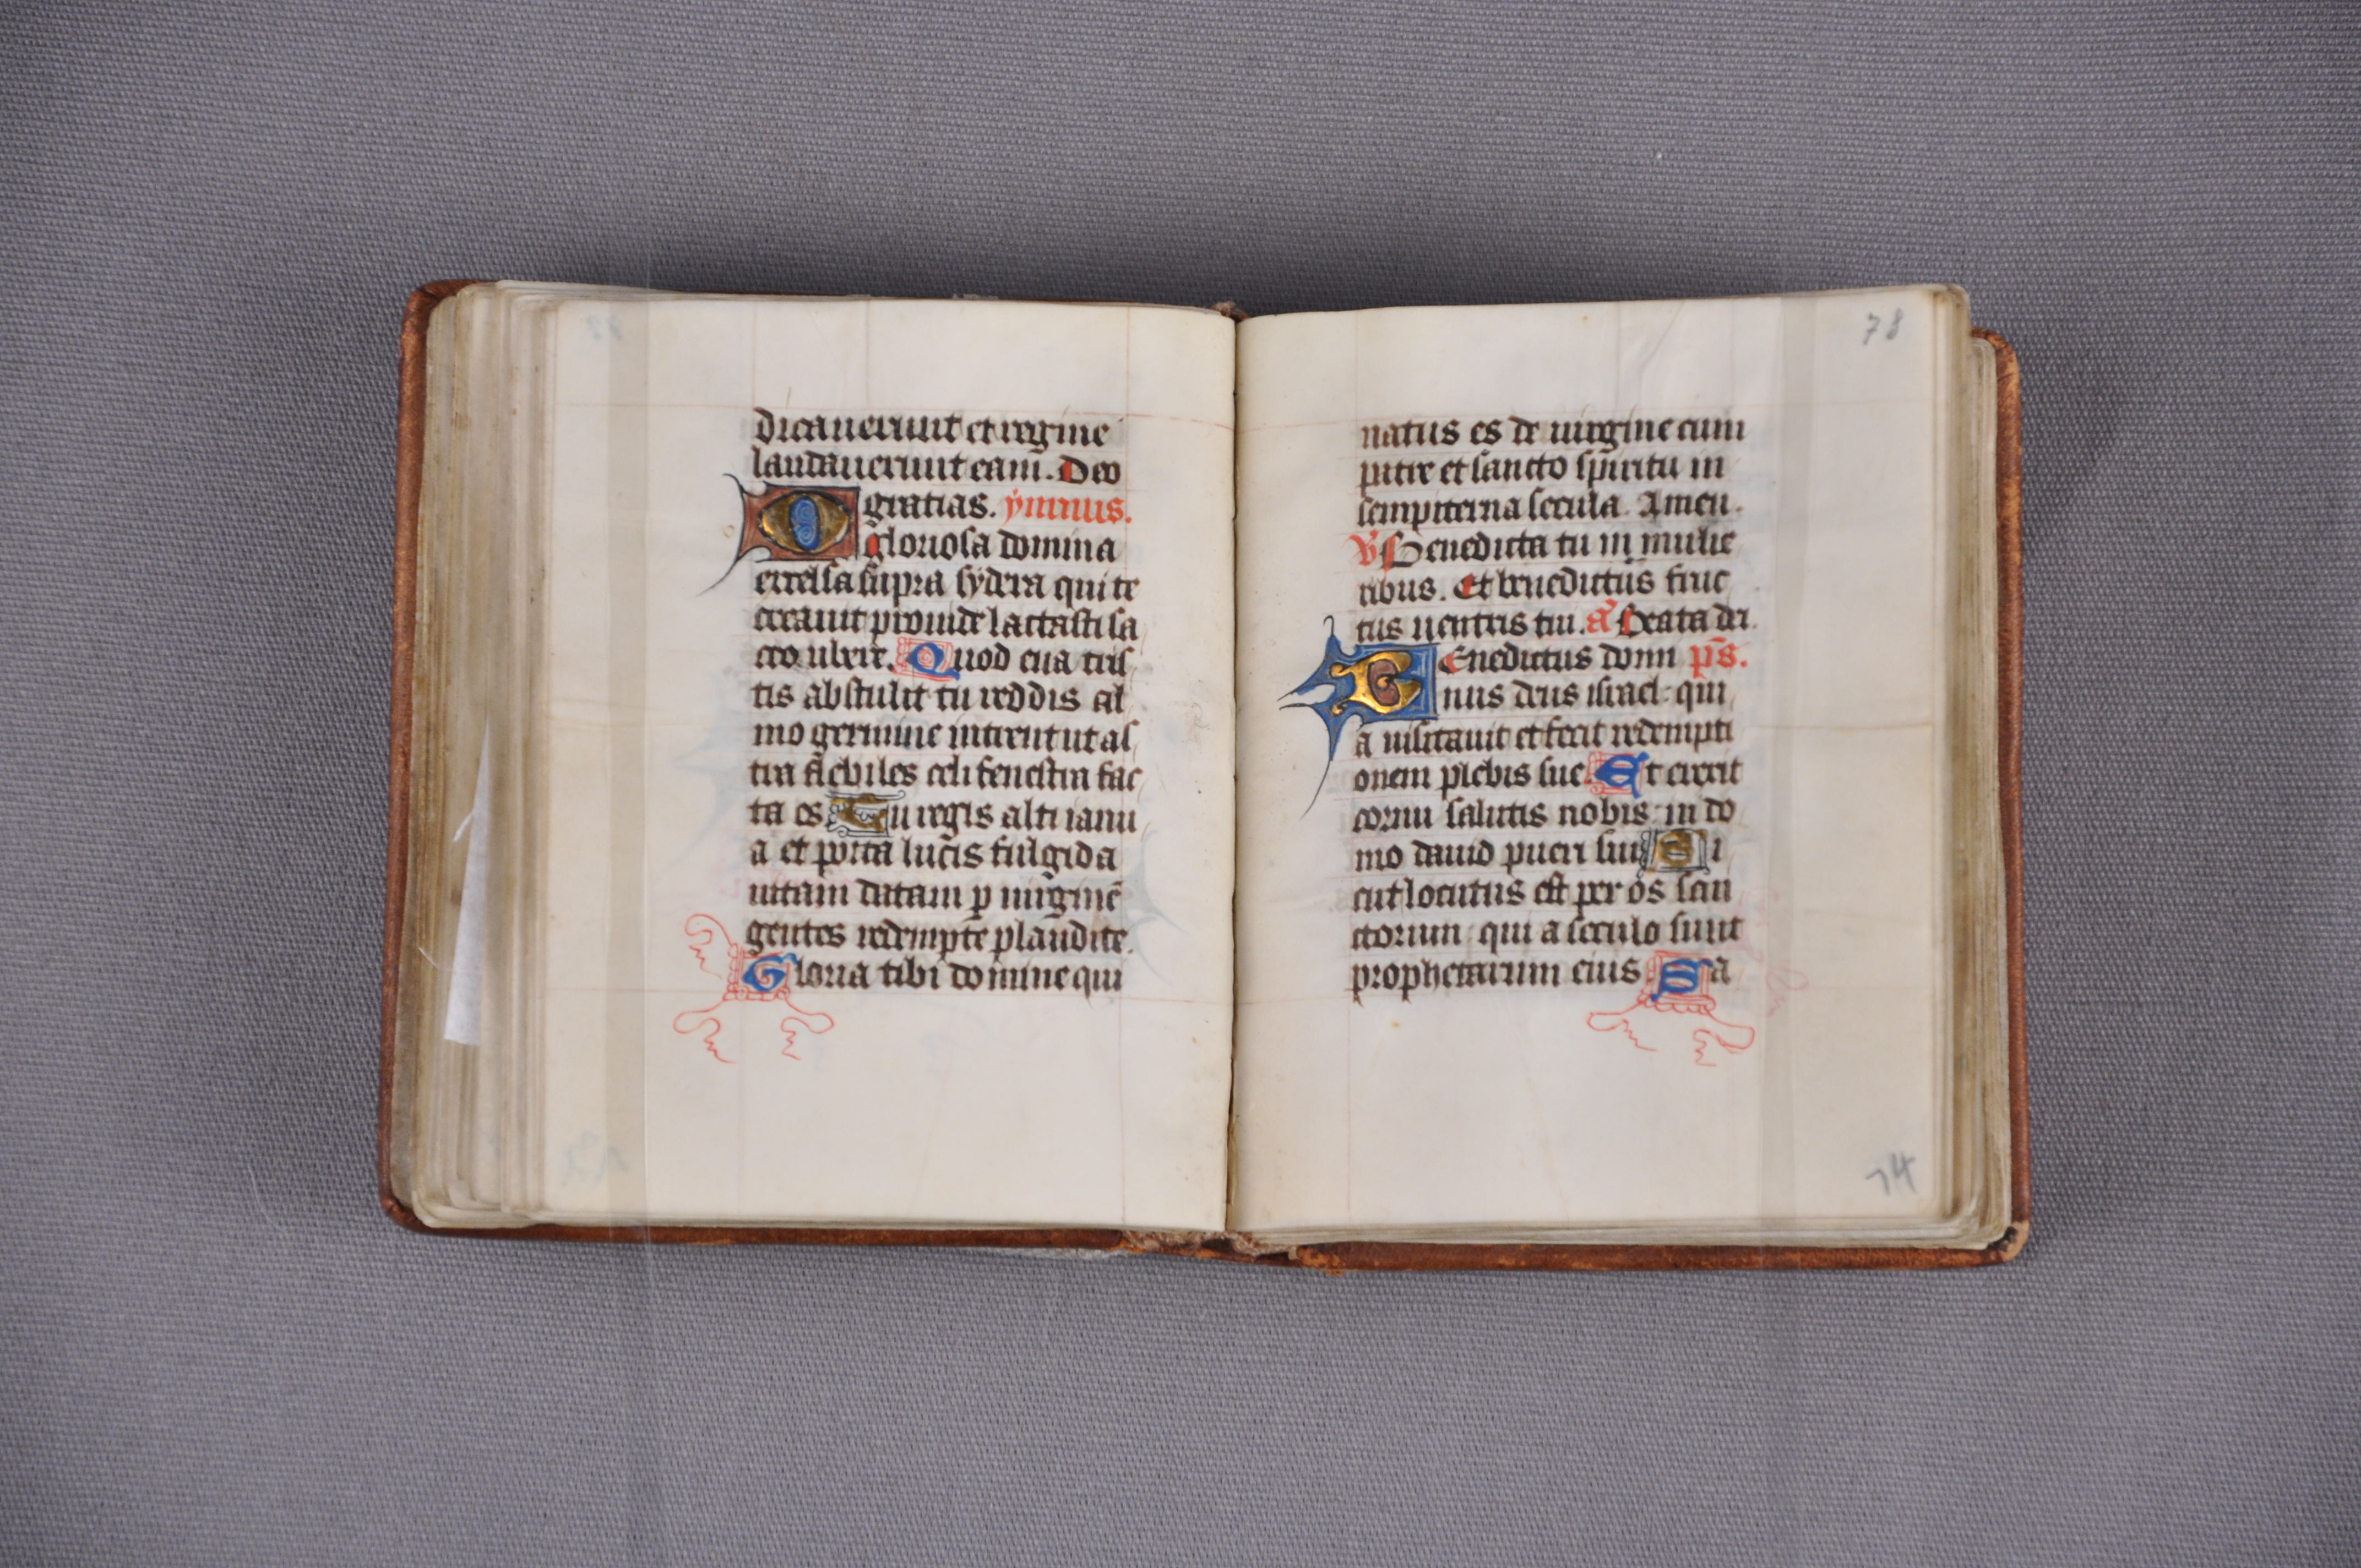 dicauerunt et regine
laudauerunt eam. Deo
gratias. ymnus.
O gloriosa domina
excelsa supra sydera qui te
creauit prouide lactasti sa
cro ubere. Quod eua tris
tis abstulit tu reddis al
mo germine intrent ut as
tra flebiles celi fenestra fac
ta es Tu regis alti ianu
a et porta lucis fulgida
uitam datam p uirginē
gentes redempte plaudite.
Gloria tibi domine qui
78
natus es de uirgine cum
patre et sancto spiritu in
sempiterna secula. Amen.
V Benedicta tu in mulie
ribus. Et benedictus fruc
tus uentris tui. a Beata dei
Benedictus domi ps.
nus deus israel qui
a uisitauit et fecit redempti
onem plebis sue Et erexit
cornu salutis nobis in do
mo dauid pueri sui Si
cut locutus est per os san
ctorum qui a seculo sunt
prophetarum eius Sa
74